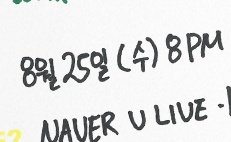 8월 25일 (수) 8PM
NAVER V LIVE